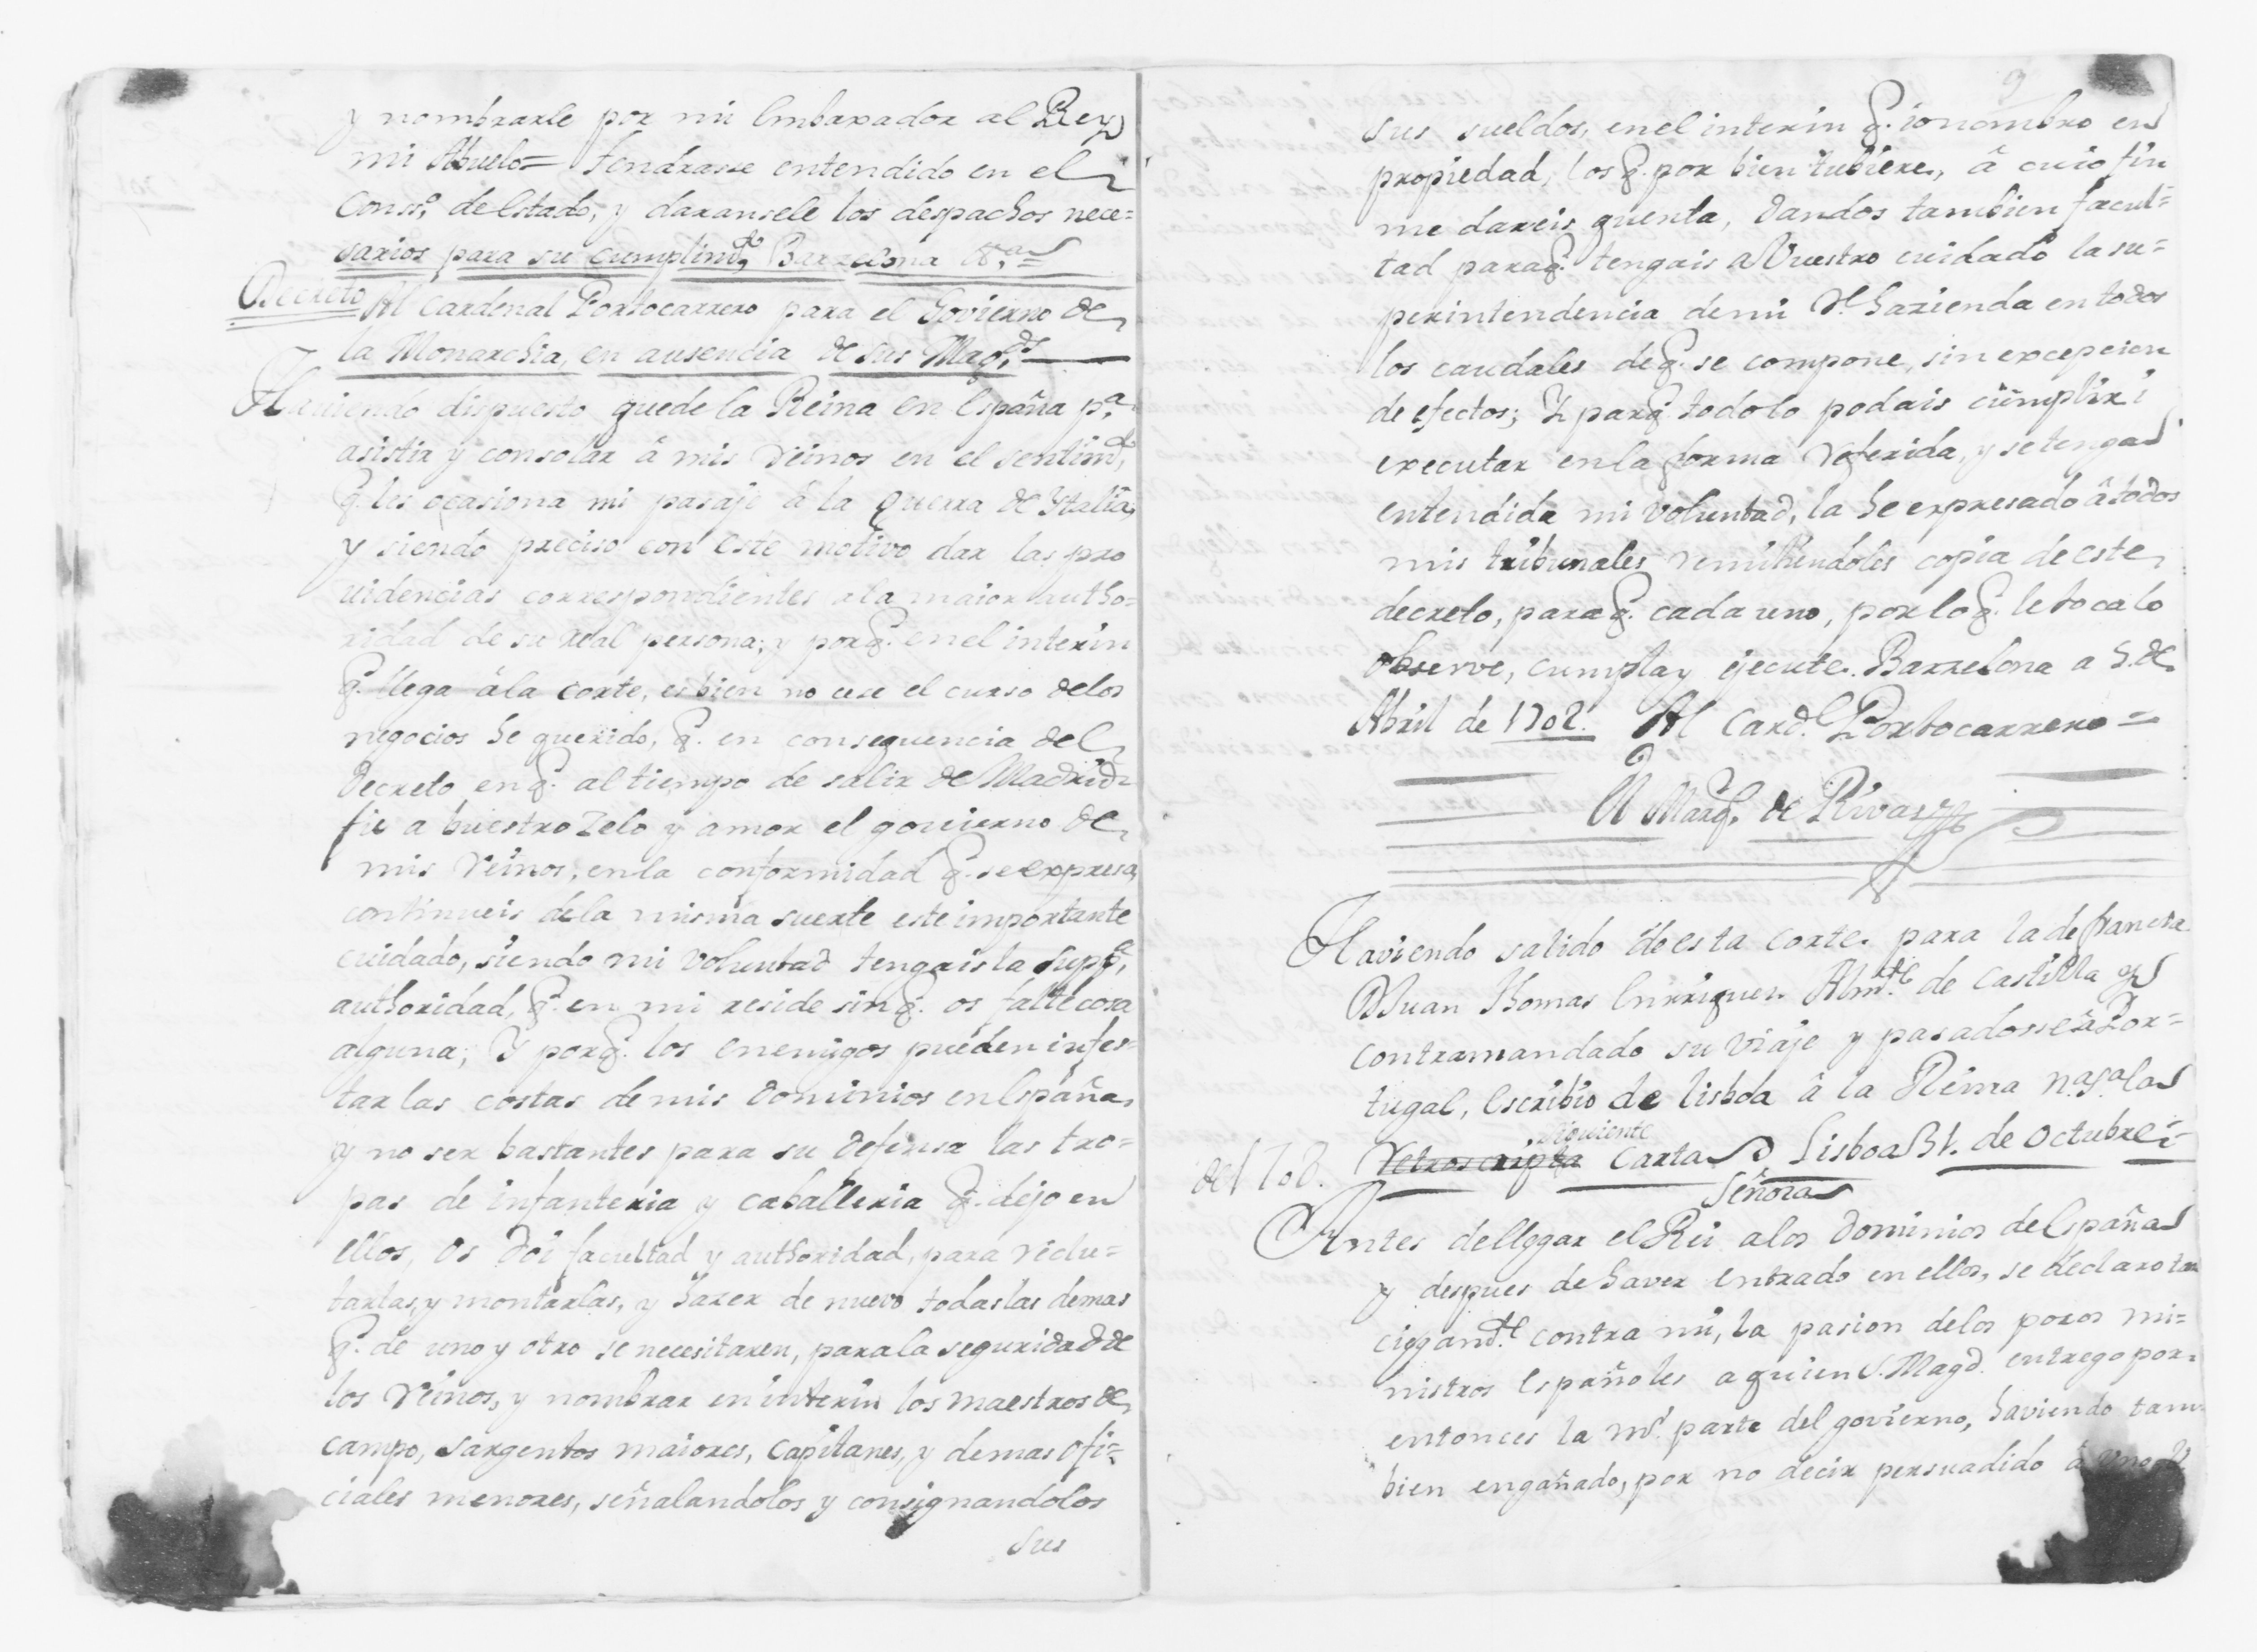 y nombrarle por mi Embaxador al Rey
mi Abuelo= Tendrasse entendido en el
Conss.º de Estado, y daransele los despachos nece=
sarios para su cumplim.to Barzelona &.ª=
Decreto Al Cardenal Portocarrero para el Govierno de
la Monarchia, en ausencia de sus Mag.des
Haviendo dispuesto quede la Reina en España p.ª
asistir y consolar â mis Reinos en el sentim.to
q. les ocasiona mi pasaje â la Guerra de Ytalia,
y siendo preciso con este motivo dar las pro
uidencias correspondientes a la maior autho=
ridad de su real persona; y porq. en el interin
q. llega âla corte, es bien no cese el curso delos
negocios he querido, q. en consequencia del
Decreto en q. al tiempo de salir de Madrid
fie a buestro Zelo y amor el govierno de
mis Reinos, en la conformidad q. se expresa,
continueis de la misma suerte este importante
cuidado, siendo mi voluntad tengais la sup.ª
authoridad, q. en mi reside sin q. os falte cosa
alguna; Y porq. los enemigos pueden infes=
tar las costas de mis Dominios en España,
y no ser bastantes para su defensa las tro=
pas de infanteria y caballeria q. dejo en
ellos, os doi facultad y authoridad, para reclu=
tarlas, y montarlas, y hazer de nuevo todas las demas
q. de uno y otro se necesitaren, para la seguridad de
los Reinos, y nombrar en interin los maestros de
campo, sargentos maiores, Capitanes, y demas ofi=
ciales menores, señalandolos y consignandolos
sus
9
sus sueldos, en el interin q. io nombro en
propiedad, los q. por bien tubiere, â cuio fin
me dareis quenta, Dandos tambien facul=
tad paraq. tengais a Vuestro cuidado la su=
perintendencia de mi R.l hazienda en todos
los caudales de q. se compone, sin excepcion
de efectos; Y paraq. todo lo podais cumplir i
executar en la forma referida, y se tenga
entendida mi voluntad, la he expresado â todos
mis tribunales remitiendoles copia de este
decreto, paraq. cada uno, por lo q. le toca lo
observe, cumpla y ejecute. Barzelona a 5. de
Abril de 1702. Al Card.l Portocarrero=
D
A Marq.s de Rivas
Haviendo salido de esta corte para la de francia
D Juan Thomas Enrriquez Almir.te de Castilla y
contramandado su viaje y pasadosse â Por=
tugal, Escribio de lisboa â la Reina n.ª s.ª la
siguiente
Retroscripta Carta Lisboa 31. de Octubre
del 708.
Señora
Antes de llegar el Rei a los Dominios de España
y despues de haver entrado en ellos, se declaro tan
ciegam.te contra mi, la pasion delos pocos mi=
nistros españoles a quien S. Magd. entrego por
entonces la m.r parte del govierno, haviendo tam
bien engañado, por no decir persuadido â